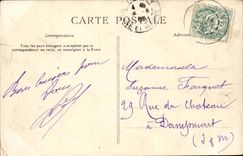 CARTE POSTALE
Correspondance
Tous les pays étrangers n'acceptent pas la
correspondance au recto, se renseigner à la Poste
Bons baisers pour
Mademoiselle
Suzanne Fouquet
29 Rue du Château
à Dampmart
(S & M)